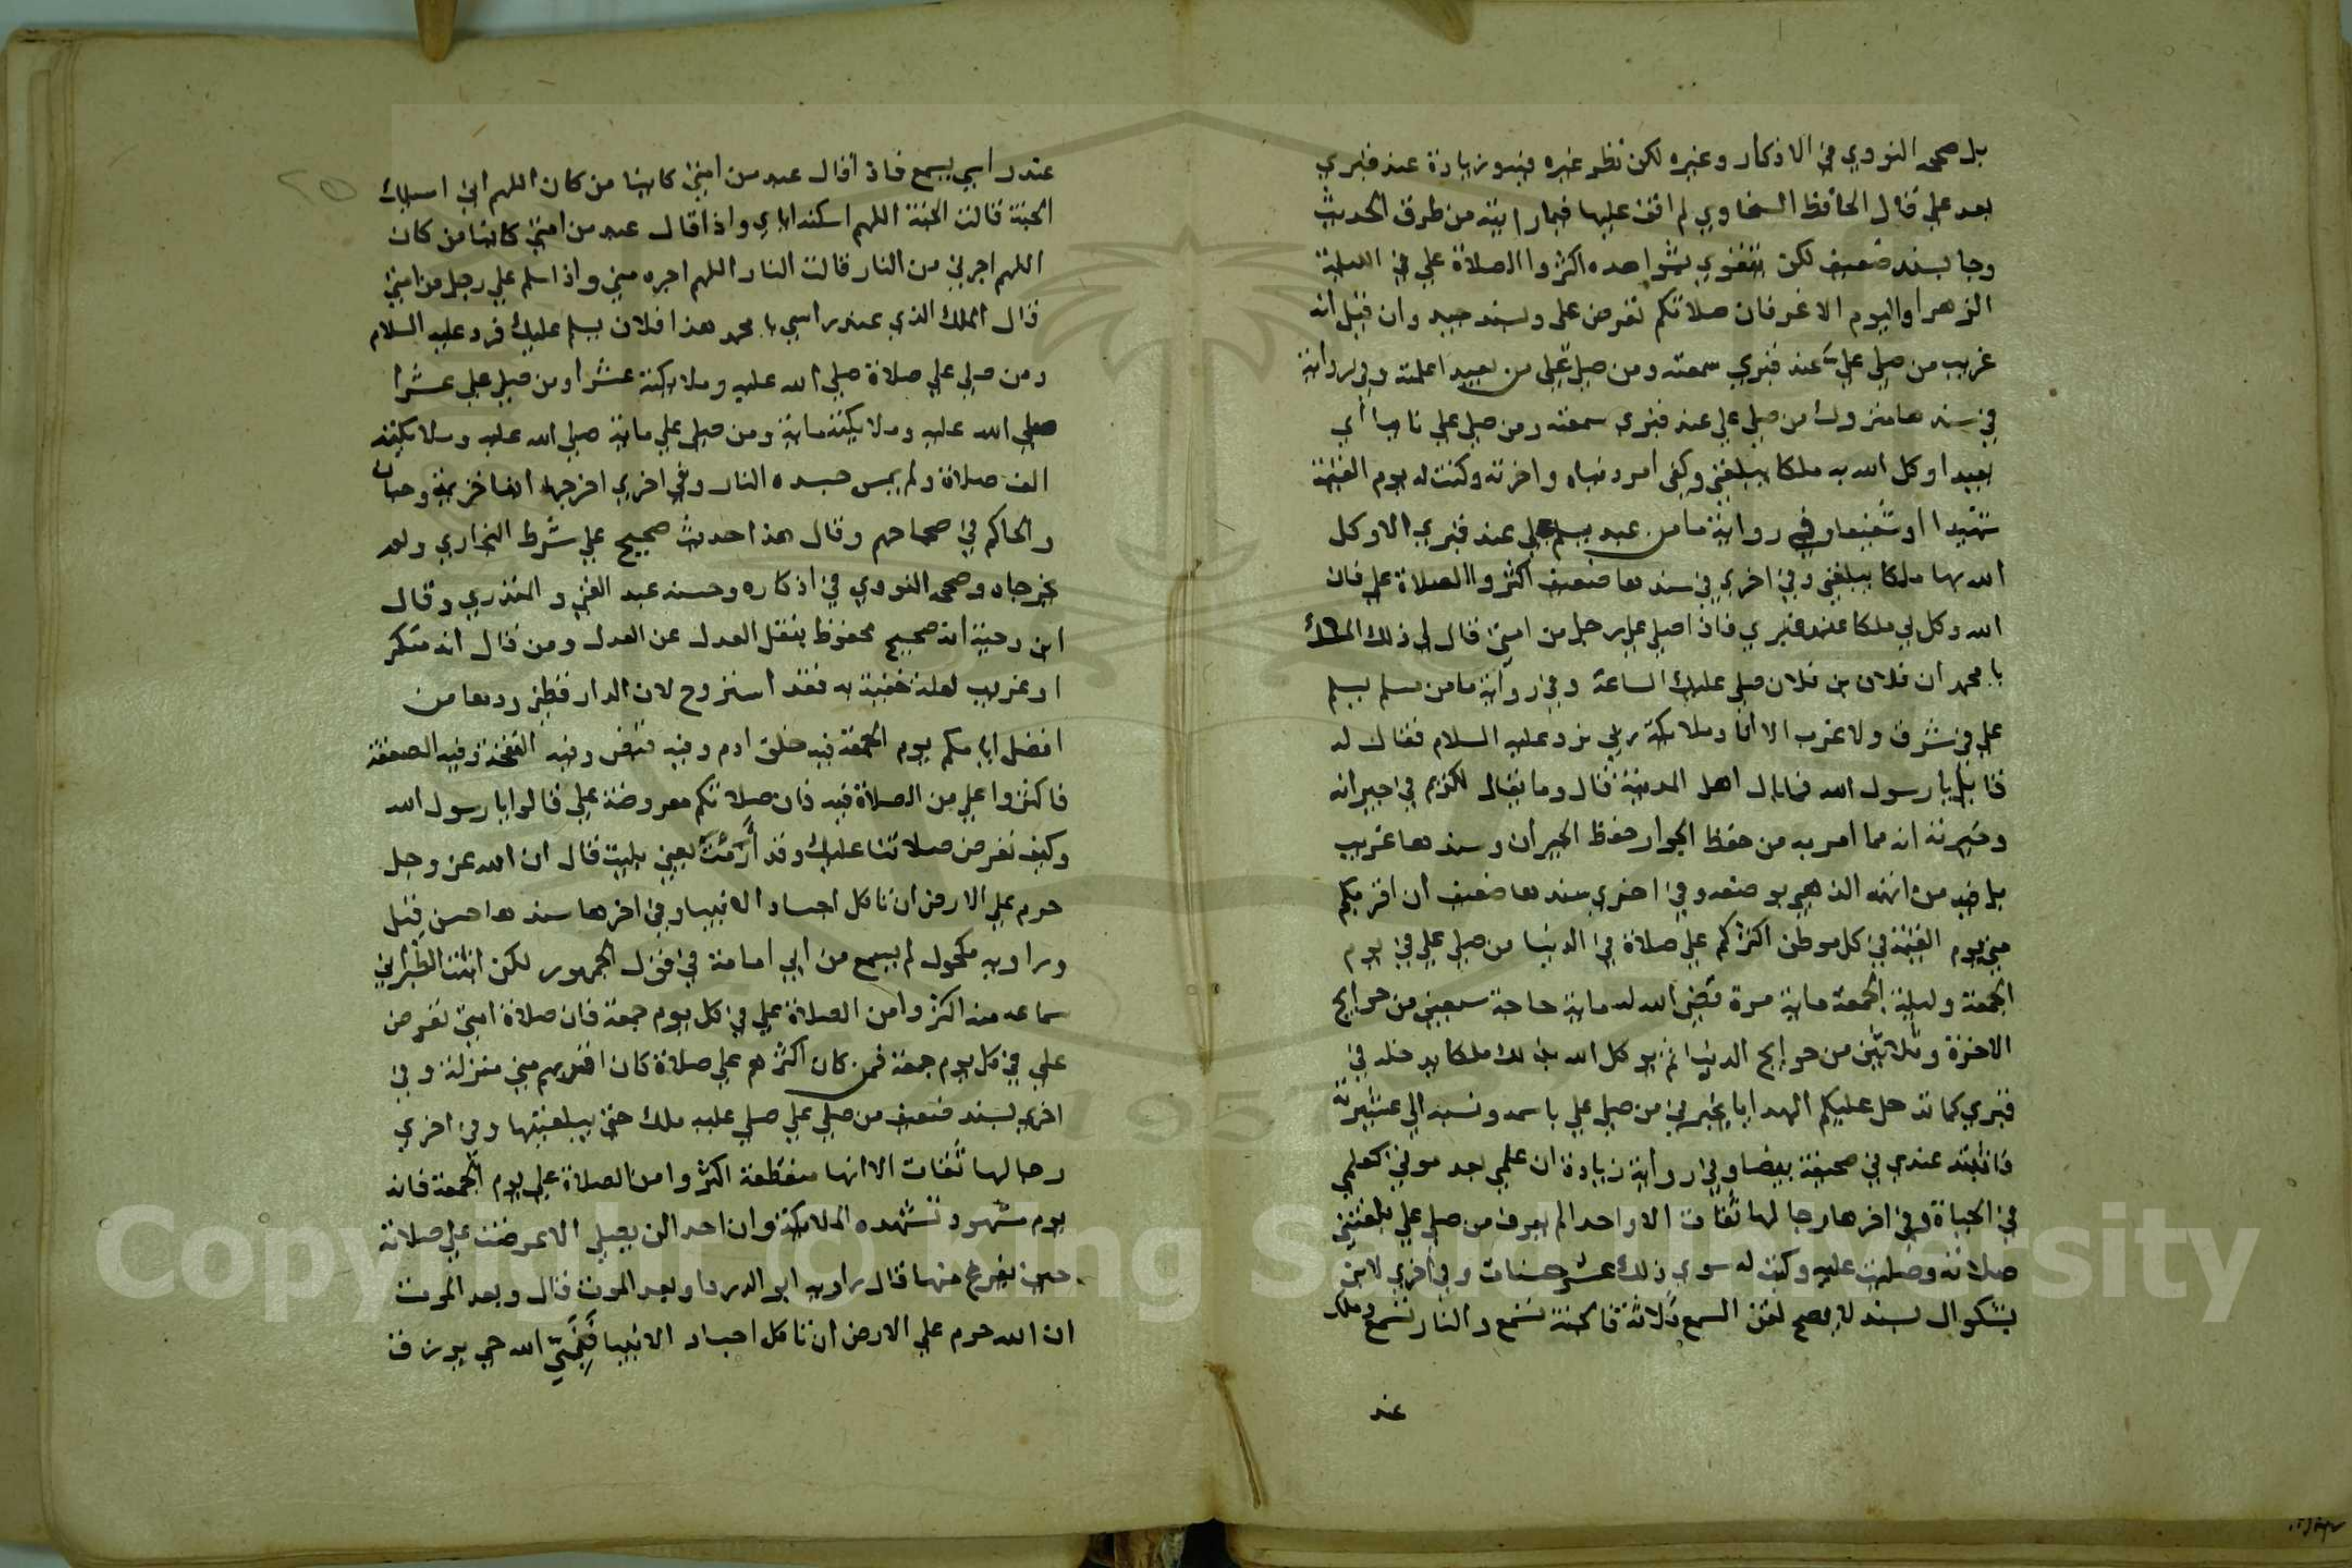 بل صححه النووي في الاذكار وغيره لكن نظر غيره فيه وزيادة عند قبري
بعد علي قال الحافظ السخاوي لم اقف عليها فيما رايته من طرق الحديث
وجا بسند ضعيف لكن يتقوي بشواهده اكثروا الصلاة علي في الليلة
الزهرا واليوم الاغر فان صلاتكم تعرض علي وبسند جيد وان قيل انه
غريب من صلي علي عند قبري سمعته ومن صلي علي من بعيد اعلمته وفي رواية
في سندها متروك من صلي علي عند قبري سمعته ومن صلي علي نائيا اي
بعيدا وكل الله به ملكا يبلغني وكفي امر دنياه واخرته وكنت له يوم القيمة
شهيدا او شفيعا وفي رواية ما من عبد يسلم علي عند قبري الا وكل
الله بها ملكا يبلغني وفي اخري في سندها ضعيف اكثروا الصلاة علي فان
الله وكل لي ملكا عند قبري فاذا صلي علي رجل من امتي قال لي ذلك الملك
يا محمد ان فلان بن فلان صلي عليك الساعة وفي رواية ما من مسلم يسلم
علي في شرق ولا غرب الا انا وملائكة ربي نرد عليه السلام فقال له
قايل يا رسول الله فما بال اهل المدينة قال وما يقال لكريم في جيرانه
وجيرته انه مما امر به من حفظ الجوار حفظ الجيران وسندها غريب
بل فيه من اتهمه الذهبي بوضعه وفي اخري بسندها ضعيف ان اقربكم
مني يوم القيمة في كل موطن اكثركم علي صلاة في الدنيا من صلي علي في يوم
الجمعة وليلة الجمعة ماية مرة قضي الله له ماية حاجة سبعين من حوايج
الاخرة وثلاثين من حوايج الدنيا ثم يوكل الله بذلك ملكا يدخله في
قبري كما تدخل عليكم الهدايا يخبرني من صلي علي باسمه ونسبه الي عشيرته
فاثبته عندي في صحيفة بيضا وفي رواية زيادة ان علمي بعد موتي كعلمي
في الحياة وفي اخرها رجالها ثقات الا واحدا لم يعرف من صلي علي بلغتني
صلاته وصليت عليه وكتب له سوي ذلك عشر حسنات وفي اخري لابن
بشكوال بسند لا يصح لقن السمع ثلاثة فالجنة تسمع والنار تسمع وملك
عند
عند راسي يسمع فاذا قال عبد من امتي كاينا من كان اللهم اني اسالك
الجنة قالت الجنة اللهم اسكنه اياي واذا قال عبد من امتي كاينا من كان
اللهم اجرني من النار قالت النار اللهم اجره مني واذا سلم علي رجل من امتي
قال الملك الذي عند راسي يا محمد هذا فلان يسلم عليك فرد عليه السلام
ومن صلي علي صلاة صلي الله عليه وملايكته عشرا ومن صلي علي عشرا
صلي الله عليه وملايكته ماية ومن صلي علي ماية صلي الله عليه وملايكته
الف صلاة ولم يمس جسده النار وفي اخري اخرجها ابنا خزيمة وحبان
والحاكم في صحاحهم وقال هذا حديث صحيح علي شرط البخاري ولم
يخرجاه وصححه النووي في اذكاره وحسنه عبد الغني والمنذري وقال
ابن دحية انه صحيح محفوظ بنقل العدل عن العدل ومن قال انه منكر
او غريب لعلة خفية به فقد استروح لان الدارقطني ردها من
افضل ايامكم يوم الجمعة فيه خلق ادم وفيه قبض وفيه النفخة وفيه الصعقة
فاكثروا علي من الصلاة فيه فان صلاتكم معروضة علي قالوا يا رسول الله
وكيف تعرض صلاتنا عليك وقد أَرَمْتَ يعني بليت قال ان الله عز وجل
حرم علي الارض ان تاكل اجساد الانبيا وفي اخرها سندها حسن قيل
وراويه مكحول لم يسمع من ابي امامة في قول الجمهور لكن اثبت الطبراني
سماعه منه اكثروا من الصلاة علي في كل يوم جمعة فان صلاة امتي تعرض
علي في كل يوم جمعة فمن كان اكثرهم علي صلاة كان اقربهم مني منزلة وفي
اخري بسند ضعيف من صلي علي صلي عليه ملك حتي يبلغنيها وفي اخري
رجالها ثقات الا انها منقطعة اكثروا من الصلاة علي يوم الجمعة فانه
يوم مشهود تشهده الملائكة وان احدا لن يصلي الا عرضت علي صلاته
حين يفرغ منها قال راويه ابو الدردا وبعد الموت قال وبعد الموت
ان الله حرم علي الارض ان تاكل اجساد الانبيا فَنَبِيُّ الله حي يرزق
Copyright © King Saud University
1957